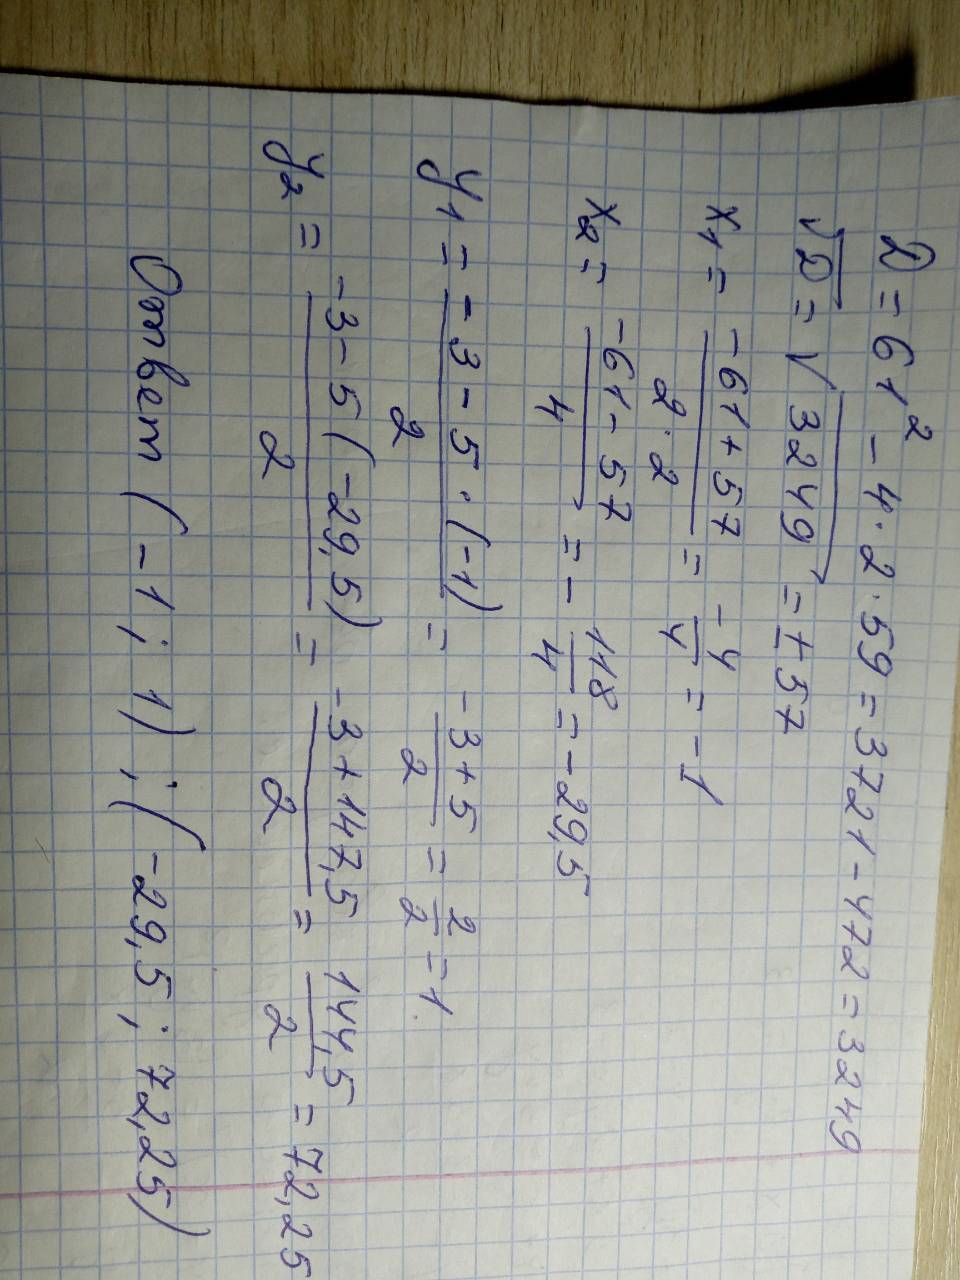 D = 61² - 4·2·59 = 3721 - 472 = 3249
√D = √3249 = ±57
x₁ = (-61+57)/(2·2) = -4/4 = -1
x₂ = (-61-57)/4 = -118/4 = -29,5
y₁ = (-3-5·(-1))/2 = (-3+5)/2 = 2/2 = 1.
y₂ = (-3-5(-29,5))/2 = (-3+147,5)/2 = 144,5/2 = 72,25
Ответ (-1; 1); (-29,5; 72,25)